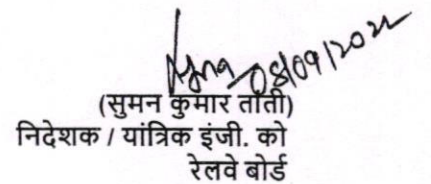 08/09/2022
(सुमन कुमार ताँती)
निदेशक / यांत्रिक इंजी. को
रेलवे बोर्ड